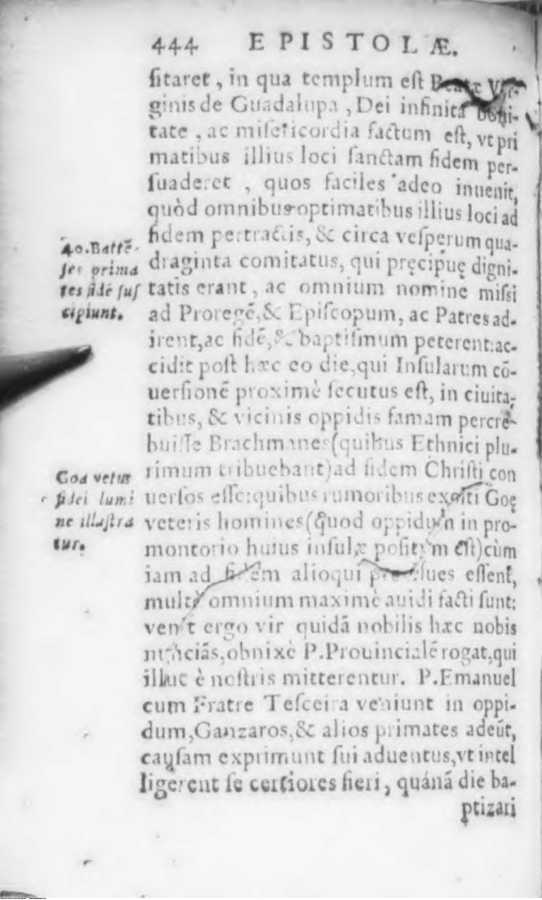 444 EPISTOLÆ.
ſitaret, in qua templum eſt Beatæ Vir-
ginis de Guadalupa, Dei infinita boni-
tate, ac miſericordia factum eſt, vt pri
matibus illius loci ſanctam fidem per-
ſuaderet, quos faciles adeo inuenit,
quòd omnibus optimatibus illius loci ad
fidem pertractis, & circa veſperum qua-
draginta comitatus, qui pręcipuę digni-
tatis erant, ac omnium nomine miſsi
ad Proregē, & Epiſcopum, ac Patres ad-
irent, ac fidē, & baptiſmum peterent: ac-
cidit poſt hæc eo die, qui Inſularum cō-
uerſionē proximè ſecutus eſt, in ciuita-
tibus, & vicinis oppidis famam percre-
buiſſe Brachmanes (quibus Ethnici plu-
rimum tribuebant) ad fidem Chriſti con
uerſos eſſe: quibus rumoribus exciti Goę
veteris homines (quod oppidum in pro-
montorio huius inſulæ poſitum eſt) cùm
iam ad fidem alioqui procliues eſſent,
multò omnium maximè auidi facti ſunt:
venit ergo vir quidā nobilis hæc nobis
nunciās, obnixè P. Prouincialē rogat, qui
illuc è noſtris mitterentur. P. Emanuel
cum Fratre Teſceira veniunt in oppi-
dum, Ganzaros, & alios primates adeūt,
cauſam exprimunt ſui aduentus, vt intel
ligerent ſe certiores fieri, quánā die ba-
ptizari
40. Battē-
ſes prima
tes fidē ſuſ
cipiunt.
Goa vetus
fidei lumi
ne illuſtra
tur.